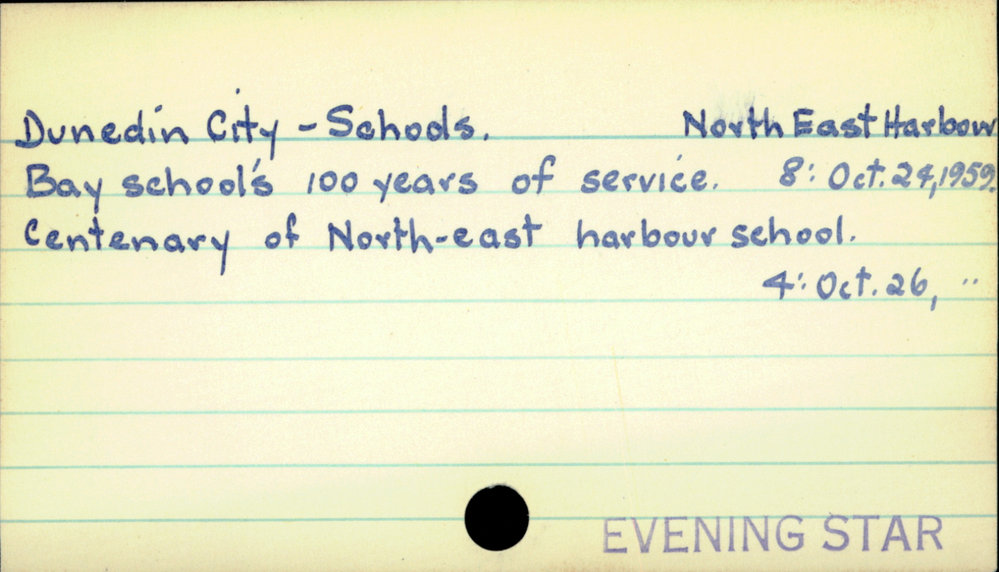 Dunedin City - Schools. North East Harbour
Bay school's 100 years of service. 8: Oct. 24, 1959.
Centenary of North-east harbour school.
4: Oct. 26, "
EVENING STAR